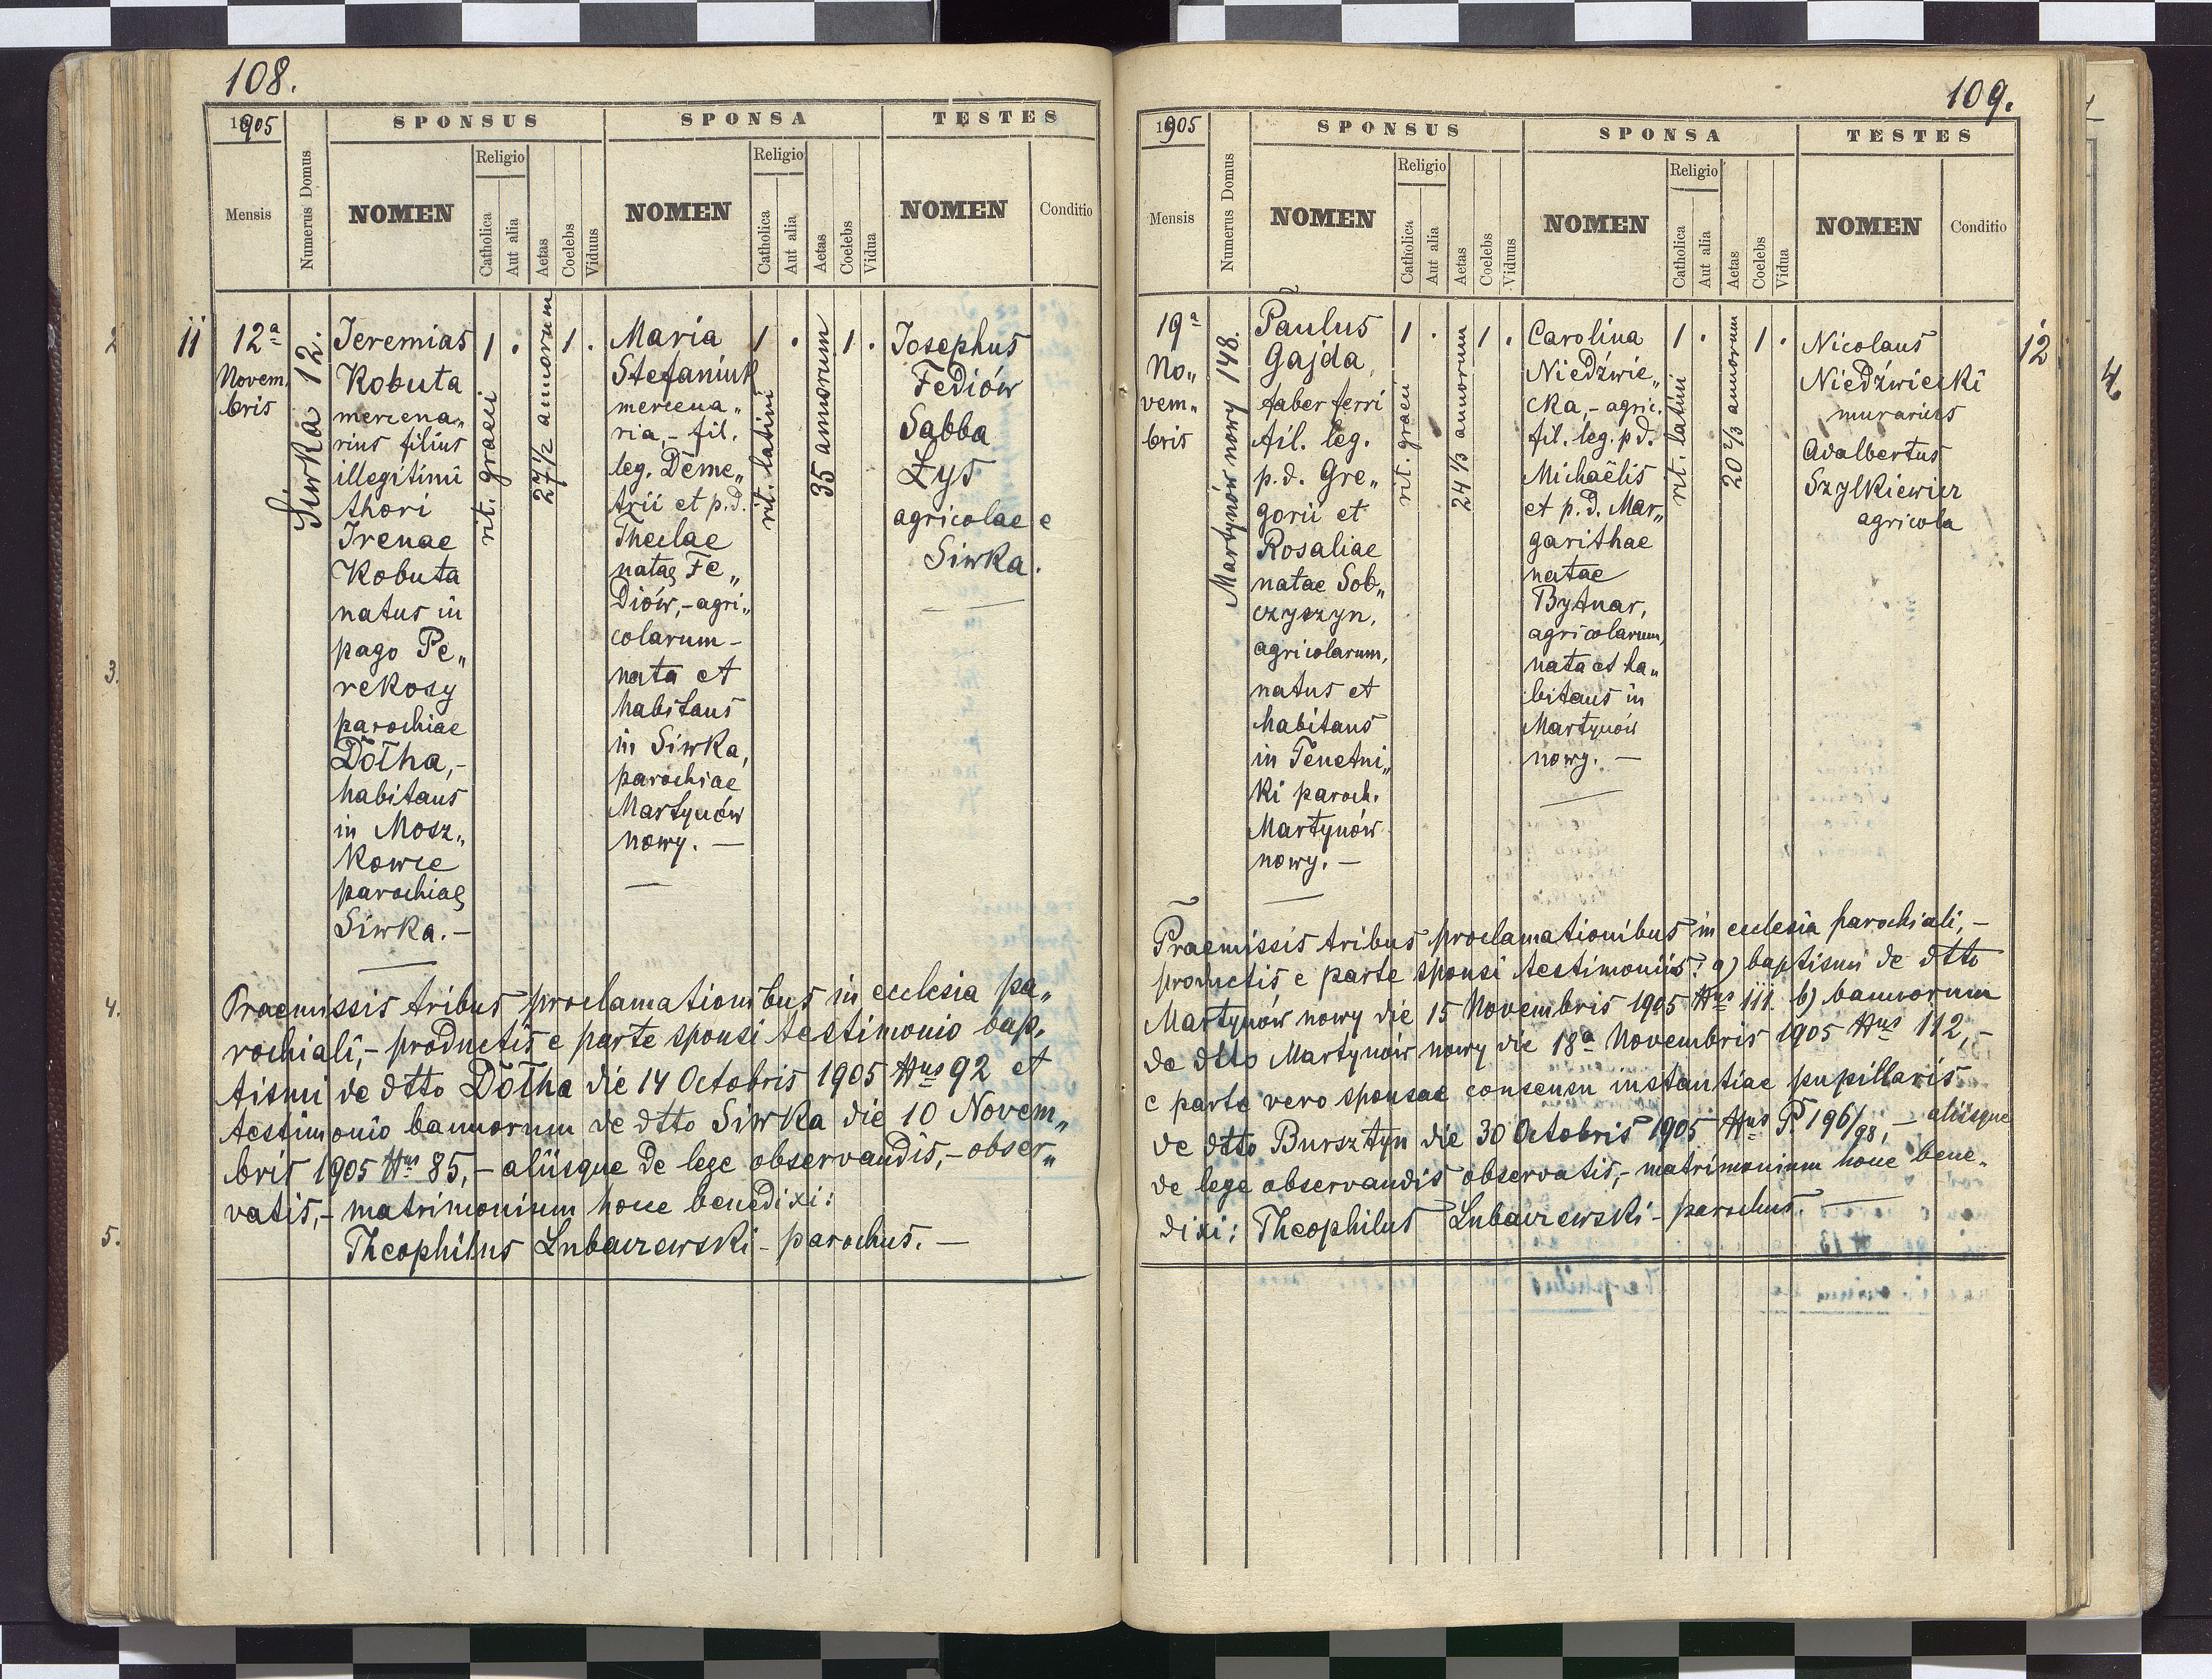 108.
1905
SPONSUS
SPONSA
TESTES
Mensis
Numerus Domus
NOMEN
Religio
Catholica
Aut alia
Aetas
Coelebs
Viduus
NOMEN
Religio
Catholica
Aut alia
Aetas
Coelebs
Vidua
NOMEN
Conditio
11
12a
Novem
bris
Siwka 12.
Jeremias
Kobuta
mercena„
rius filius
illegitimi
thori
Irenae
Kobuta
natus in
pago Pe„
rekosy
parochiae
Dołha,-
habitans
in Mosz„
kowce
parochiae
Siwka.-
1 .
rit. graeci
27 1/2 annorum
1 .
Maria
Stefaniuk
mercena„
ria,- fil.
leg. Deme„
trii et p.d.
Theclae
natae Fe„
diów,- agri„
colarum-
nata et
habitans
in Siwka,
parochiae
Martynów
nowy. —
1 .
rit. latini
35 annorum
1 .
Josephus
Fediów
Sabba
Łyś
agricolae e
Siwka.
Praemissis tribus proclamationibus in ecclesia pa„
rochiali,- productis e parte sponsi testimonio bap.
tismi de dtto Dołha die 14 Octobris 1905 Nus 92 et
testimonio bannorum de dtto Siwka die 10 Novem„
bris 1905 Nus 85,- aliisque de lege observandis,- obser„
vatis,- matrimonium hocce benedixi:
Theophilus Lubaczewski - parochus. —
2
3.
4.
5.
109.
1905
SPONSUS
SPONSA
TESTES
Mensis
Numerus Domus
NOMEN
Religio
Catholica
Aut alia
Aetas
Coelebs
Viduus
NOMEN
Religio
Catholica
Aut alia
Aetas
Coelebs
Vidua
NOMEN
Conditio
19a
No„
vem„
bris
Martynów nowy 148.
Paulus
Gajda,
faber ferri
fil. leg.
p.d. Gre„
gorii et
Rosaliae
natae Sob„
czyszyn,
agricolarum,
natus et
habitans
in Tenetni„
ki paroch.
Martynów
nowy. —
1 .
rit. graeci
24 1/3 annorum
1 .
Carolina
Niedźwie„
cka,- agric.
fil. leg. p d.
Michaëlis
et p. d. Mar„
garithae
natae
Bytnar,
agricolarum,
nata et ha„
bitans in
Martynów
nowy. —
1 .
rit. latini
20 2/3 annorum
1 .
Nicolaus
Niedźwiecki
murarius
Adalbertus
Szylkiewicz
agricola
12
4
Praemissis tribus proclamationibus in ecclesia parochiali,-
productis e parte sponsi testimoniis: a) baptismi de dtto
Martynów nowy die 15 Novembris 1905 Nus 111. b) bannorum
de dtto Martynów nowy die 18a Novembris 1905 Nus 112,-
e parte vero sponsae consensu instantiae pupillaris
de dtto Bursztyn die 30 Octobris 1905 Nus P 196/98,- aliisque
de lege observandis observatis,- matrimonium hocce bene„
dixi: Theophilus Lubaczewski - parochus. —